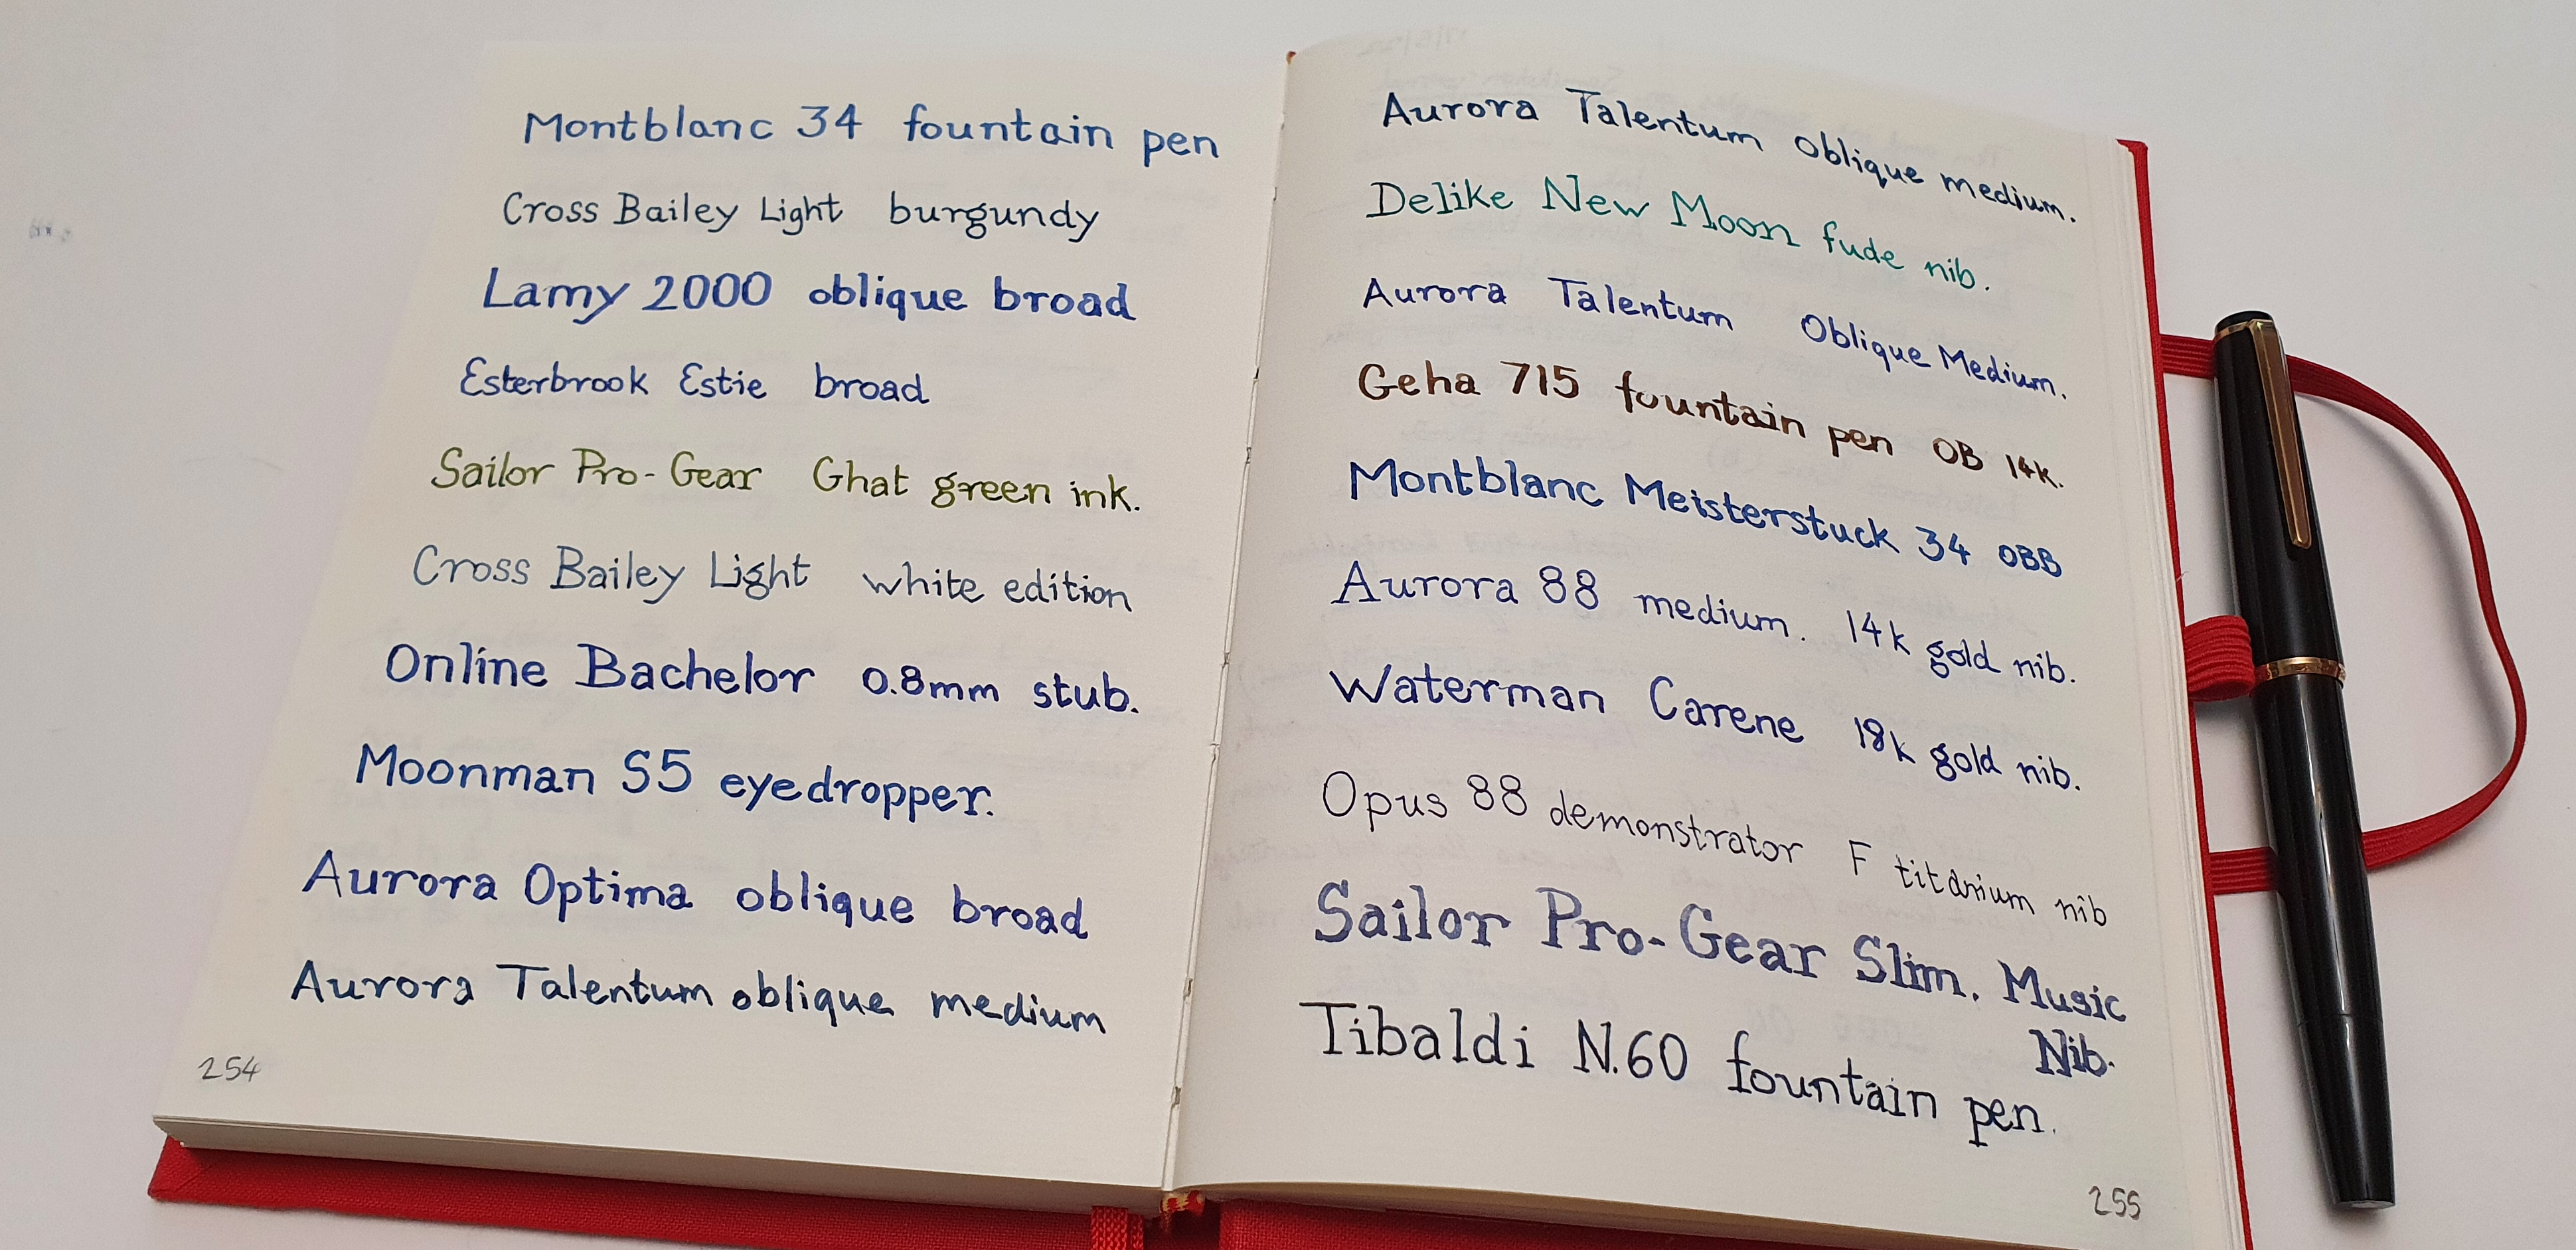 Montblanc 34 fountain pen
Cross Bailey Light burgundy
Lamy 2000 oblique broad
Esterbrook Estie broad
Sailor Pro-Gear Ghat green ink.
Cross Bailey Light white edition
Online Bachelor 0.8mm stub.
Moonman S5 eyedropper.
Aurora Optima oblique broad
Aurora Talentum oblique medium
254
Aurora Talentum oblique medium.
Delike New Moon fude nib.
Aurora Talentum Oblique Medium.
Geha 715 fountain pen OB 14k.
Montblanc Meisterstuck 34 OBB
Aurora 88 medium. 14k gold nib.
Waterman Carene 18k gold nib.
Opus 88 demonstrator F titanium nib
Sailor Pro-Gear Slim. Music
Nib.
Tibaldi N.60 fountain pen.
255